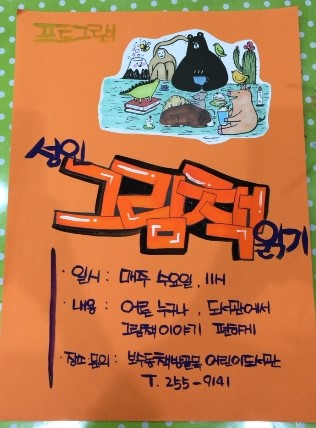 프로그램
성인
그림책
읽기
· 일시 : 매주 수요일, 11시
· 내용 : 어른 누구나, 도서관에서
그림책 이야기 편하게
· 장소 문의 : 보수동책방골목 어린이도서관
T. 255-9141